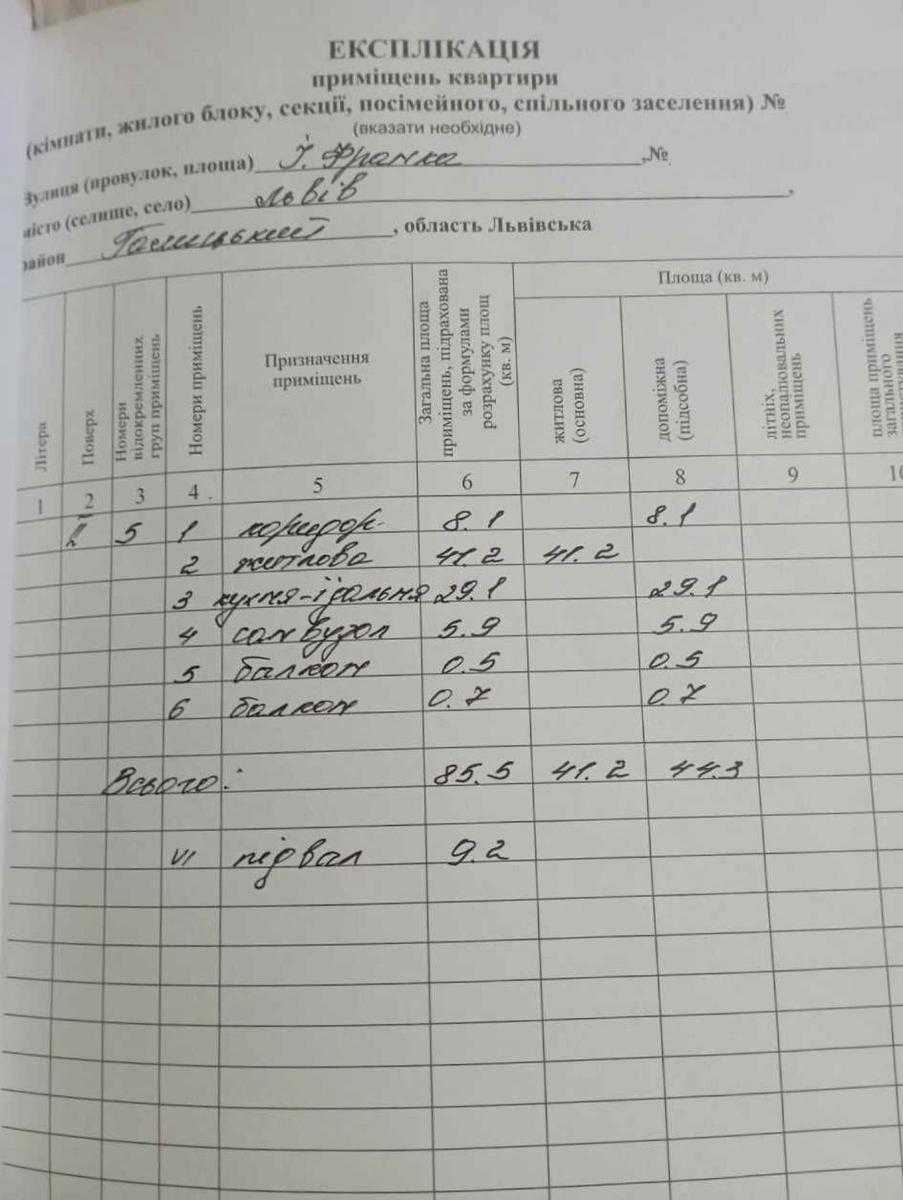 ЕКСПЛІКАЦІЯ
приміщень квартири
(кімнати, жилого блоку, секції, посімейного, спільного заселення) №
(вказати необхідне)
Вулиця (провулок, площа) І. Франка ,№
місто (селище, село) Львів ,
район Галицький , область Львівська
Літера
Поверх
Номери відокремленних груп приміщень
Номери приміщень
Призначення приміщень
Загальна площа приміщень, підрахована за формулами розрахунку площ (кв. м)
Площа (кв. м)
житлова (основна)
допоміжна (підсобна)
літніх, неопалювальних приміщень
площа приміщень загального
1 2 3 4 5 6 7 8 9 10
ІІ 5 1 коридор 8.1 8.1
2 житлова 41.2 41.2
3 кухня-їдальня 29.1 29.1
4 санвузол 5.9 5.9
5 балкон 0.5 0.5
6 балкон 0.7 0.7
Всього: 85.5 41.2 44.3
VI підвал 9.2